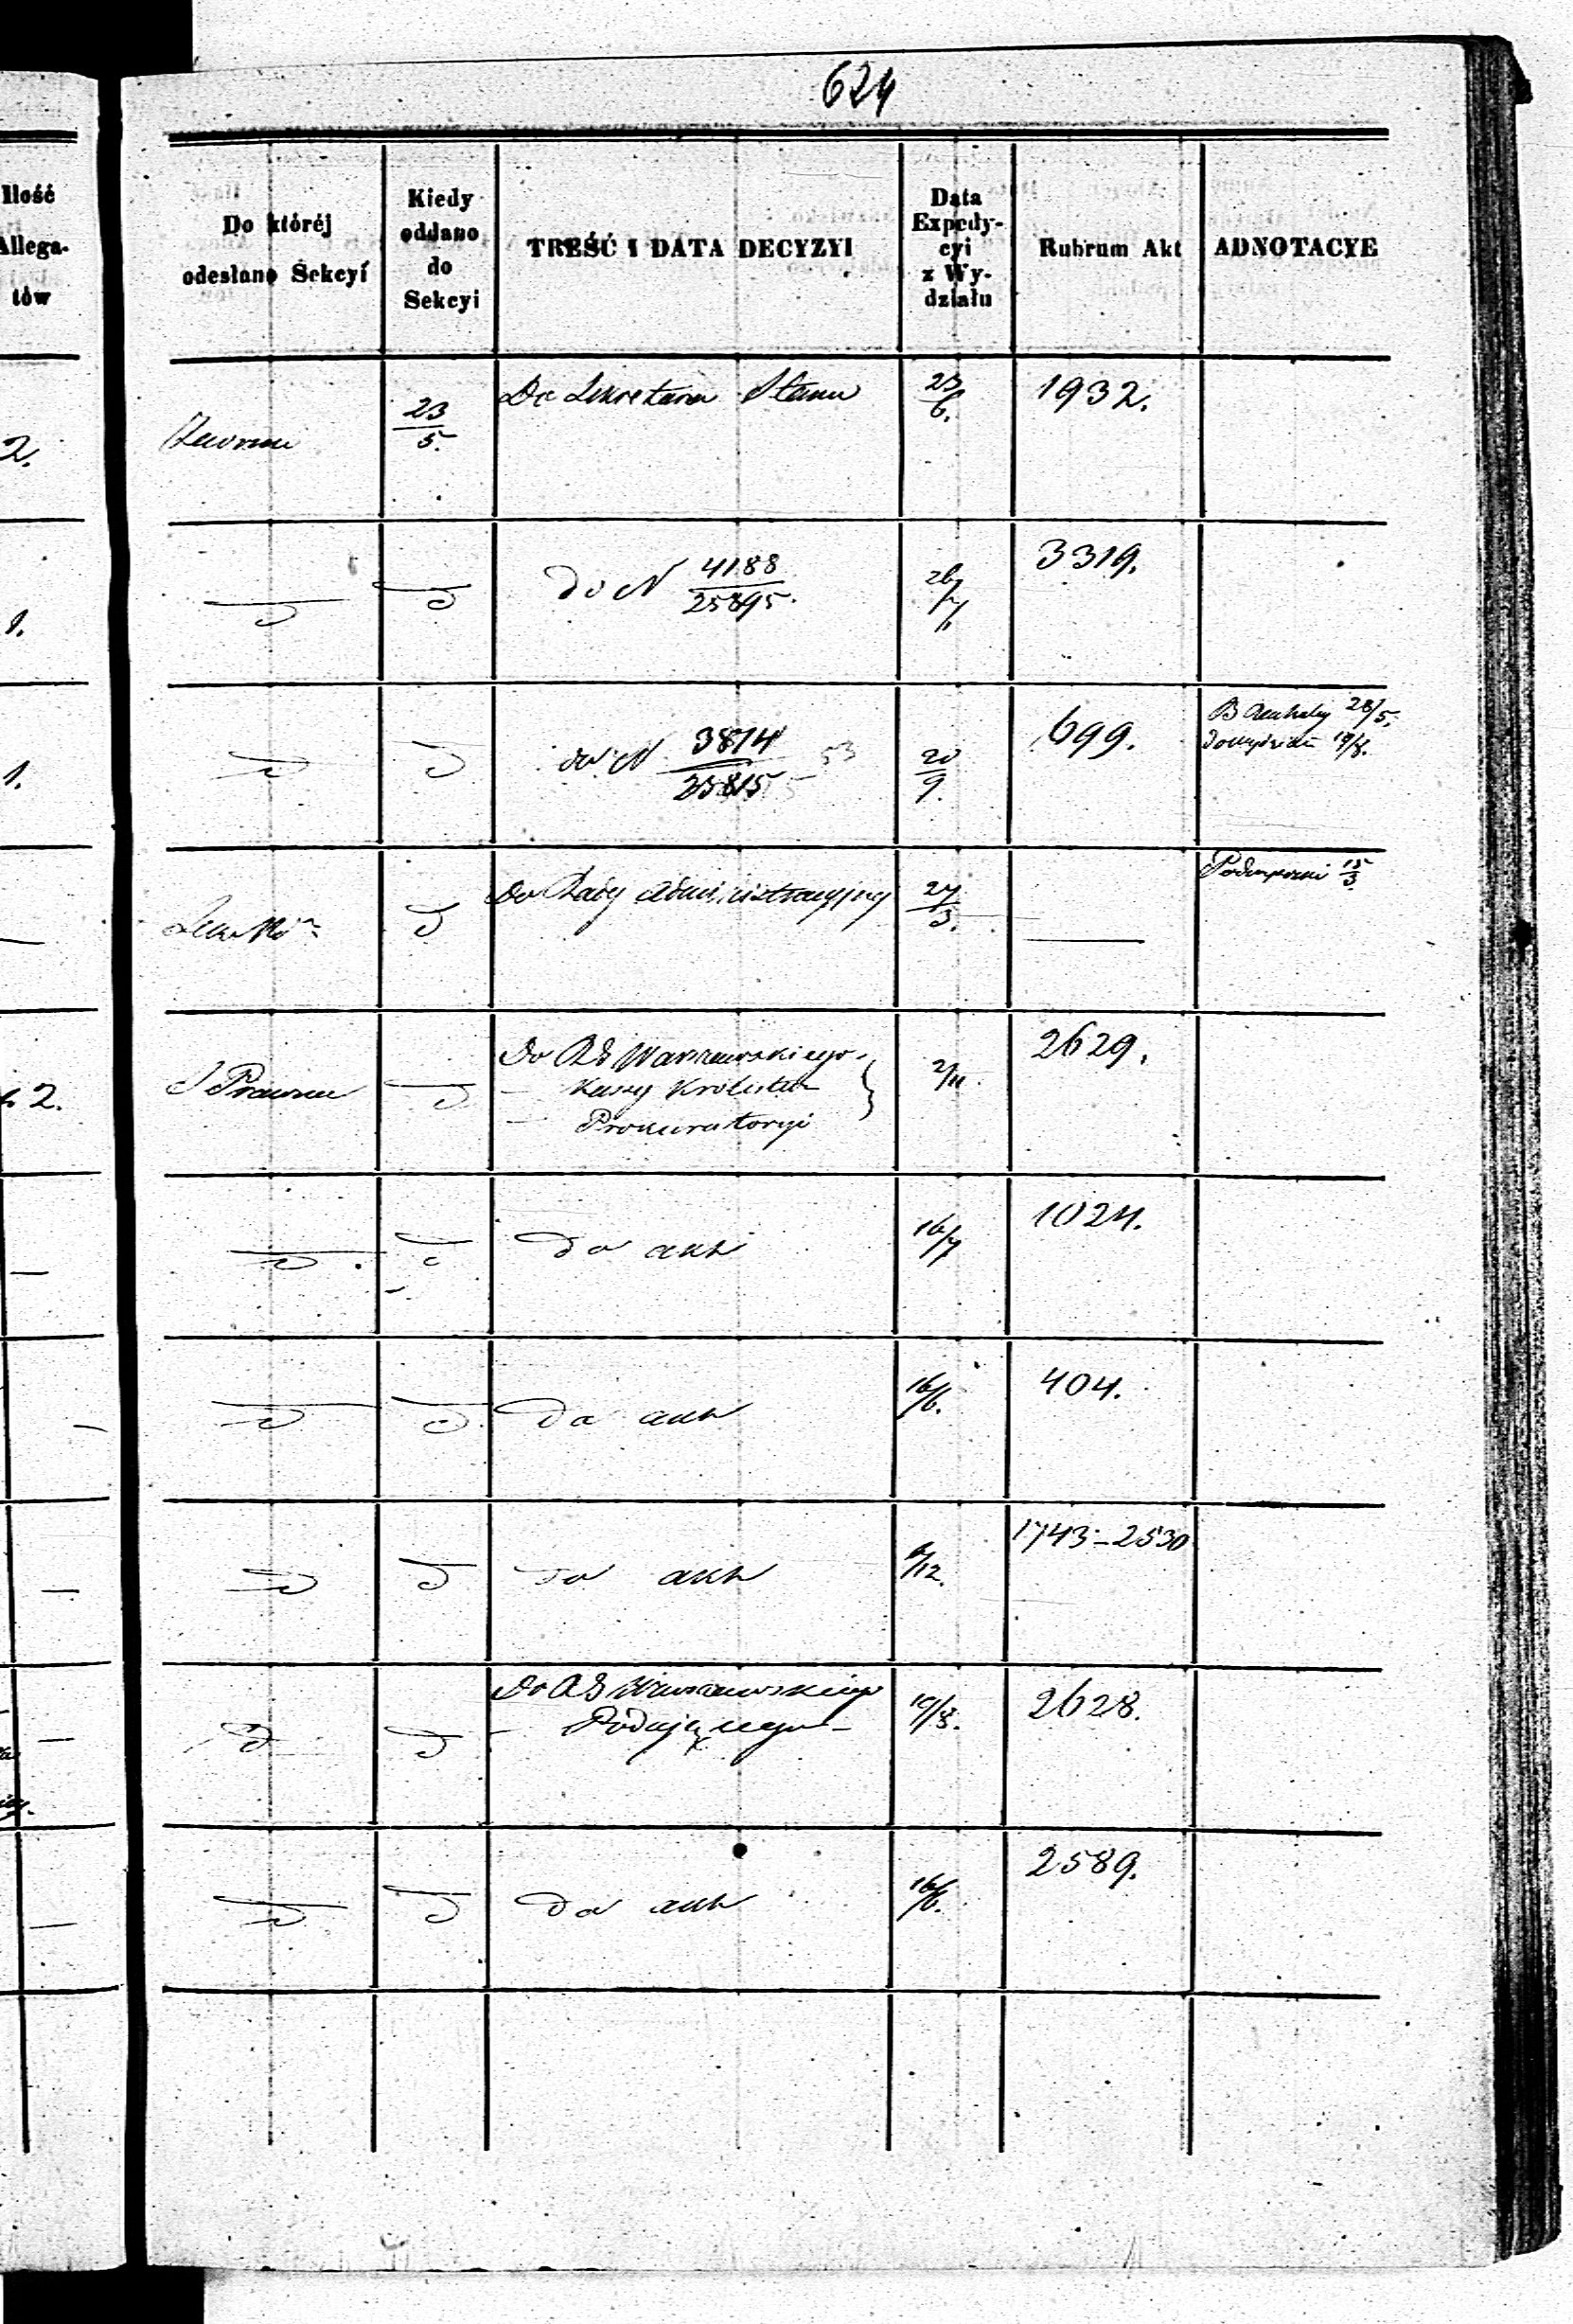 624
Ilość
Allega-
tów
Do któréj
odesłano Sekcyi
Kiedy
oddano
do
Sekcyi
TREŚĆ I DATA DECYZYI
Data
Expedy-
cyi
z Wy-
działu
Rubrum Akt
ADNOTACYE
2.
23/5.
Do Sekretarza Stanu
23/6.
1932.
1.
do N 4188/25895.
26/7
3319.
1.
do N 3874/25815
20/9.
699.
28/5.
19/8.
Do Rady Administracyjnej
27/3.
15/3
2.
S Prawna
Do RG Warszawskiego
— Kassy
— Prokuratoryi
2/11.
2629.
do akt
16/7
1024.
do akt
16/6.
404.
do akt
6/12.
1743–2530
Do RG Warszawskiego
– Podającego –
19/8.
2628.
do akt
16/6.
2589.